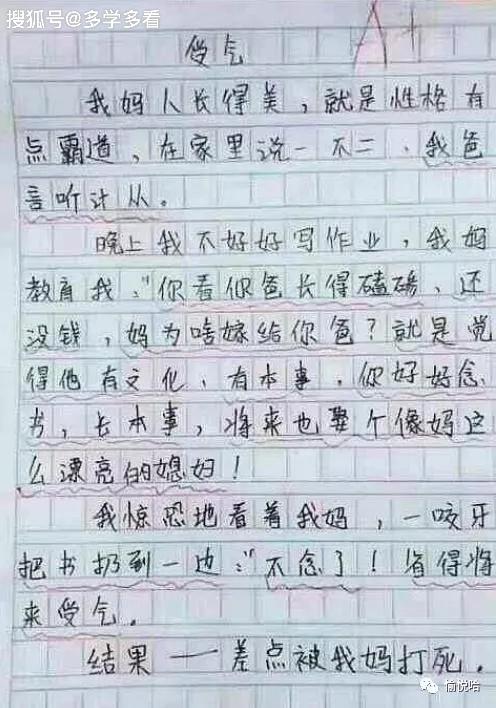 搜狐号@多学多看
A+
受气
我妈人长得美，就是性格有
点霸道，在家里说一不二、我爸
言听计从。
晚上我不好好写作业，我妈
教育我："你看你爸长得磕碜、还
没钱，妈为啥嫁给你爸？就是觉
得他有文化、有本事，你好好念
书，长本事，将来也娶个像妈这
么漂亮的媳妇！
我惊恐地看着我妈，一咬牙
把书扔到一边："不念了！省得将
来受气。
结果——差点被我妈打死。
愉悦哈